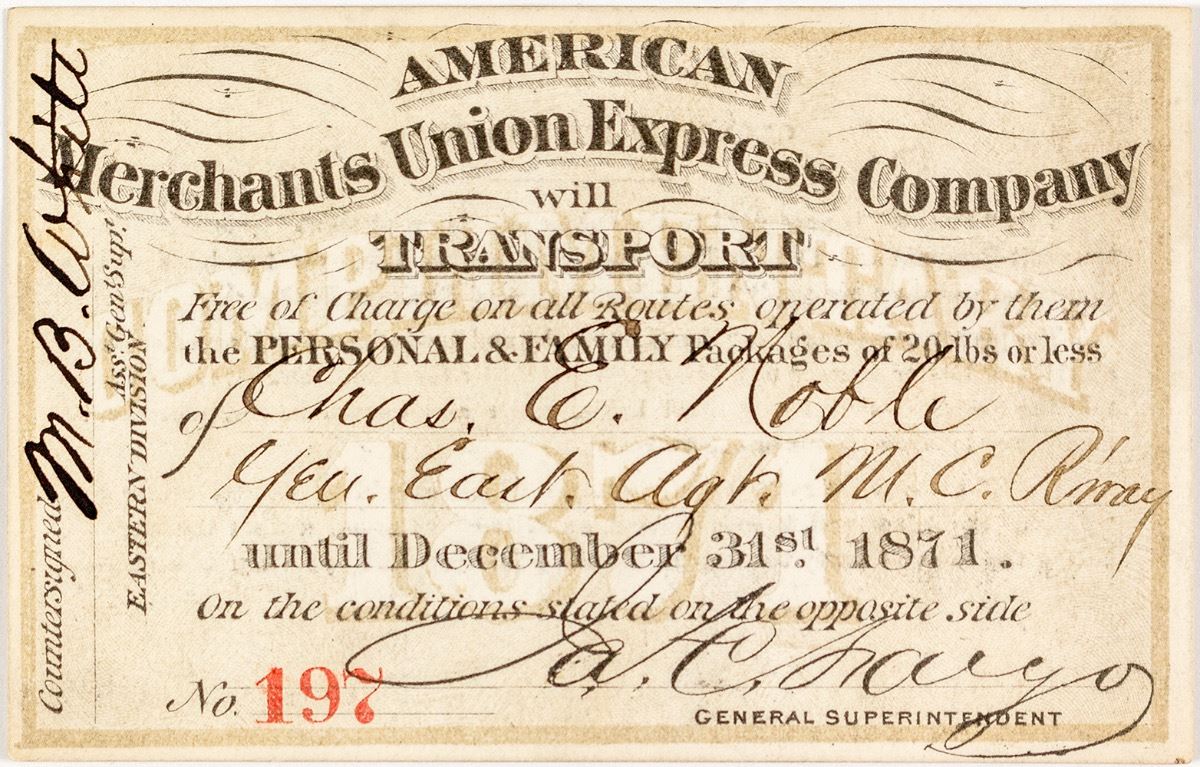 AMERICAN
Merchants Union Express Company
will
TRANSPORT
Free of Charge on all Routes operated by them
the PERSONAL & FAMILY Packages of 20 lbs or less
of Chas. E. Noble
Gen. East. Agt. M. C. R'way
until December 31st. 1871.
On the conditions stated on the opposite side
No. 197
Ja. C. Fargo
GENERAL SUPERINTENDENT
Countersigned
M. B. White
Asst. Genl. Supt.
EASTERN DIVISION
1871